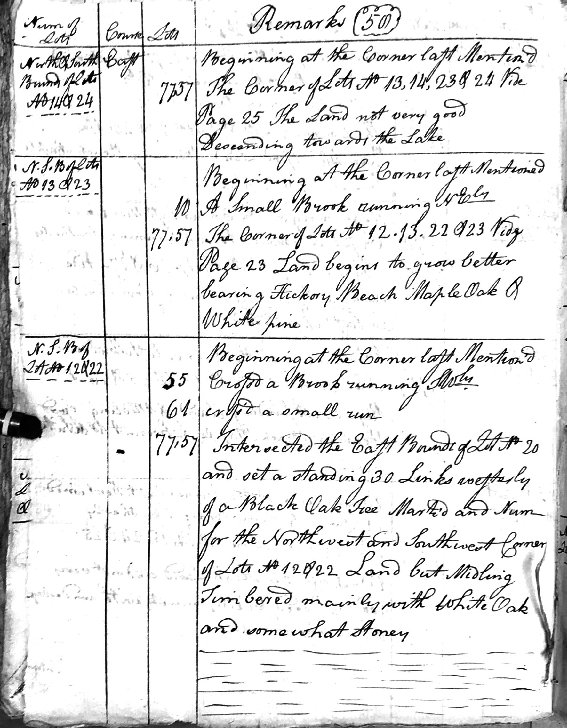 Num of Lots Course Lots Remarks (50)
North & South East Beginning at the Corner last Mention'd
Bound of Lots
No 14 & 24 77.57 The Corner of Lots No 13, 14, 23 & 24 Vide
Page 25 The Land not very good
Descending towards the Lake
N. S. B of Lots Beginning at the Corner last Mentioned
No 13 & 23
10 A Small Brook running N Ely
77.57 The Corner of Lots No 12. 13. 22 & 23 Vide
Page 23 Land begins to grow better
bearing Hickory Beach Maple Oak &
White pine
N. S. B of Beginning at the Corner last Mention'd
Lot No 12 & 22
55 Cross'd a Brook running SWly
61 cross'd a small run
77.57 Intersected the East Bounds of Lot No 20
and set a standing 30 Links westerly
of a Black Oak Tree Marked and Num
for the Northwest and Southwest Corner
of Lots No 12 & 22 Land but Midling
Timbered mainly with White Oak
and somewhat Stoney